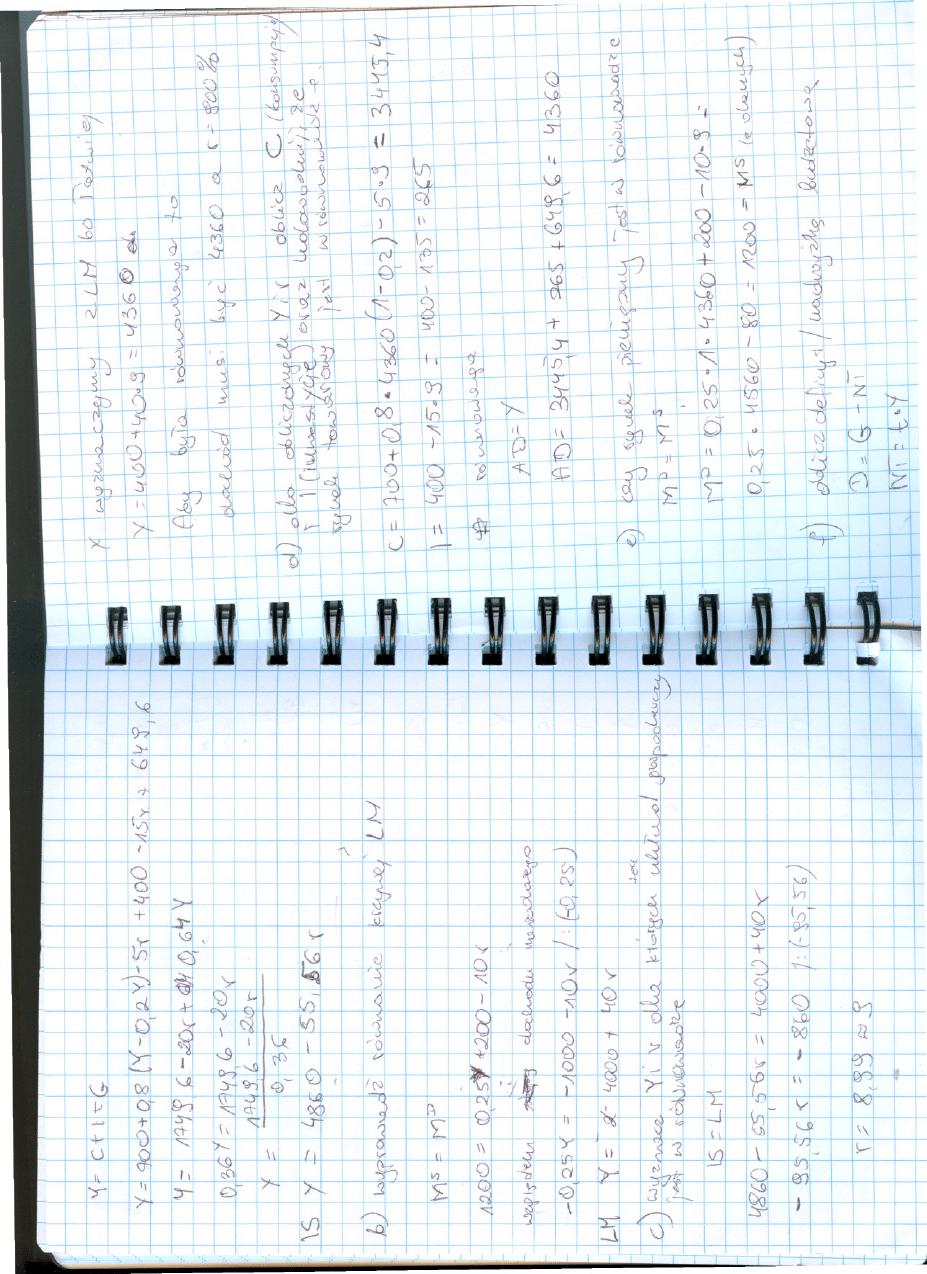 Y = C + I + G
Y = 700 + 0,8 (Y - 0,2Y) - 5r + 400 - 15r + 649,6
Y = 1749,6 - 20r + 0,64Y
0,36Y = 1749,6 - 20r
Y = 1749,6 - 20r / 0,36
IS Y = 4860 - 55,56r
b) wyprowadź równanie krzywej LM
M^S = M^D
1200 = 0,25Y + 200 - 10r
względem dochodu narodowego
-0,25Y = -1000 - 10r /:(-0,25)
LM Y = 4000 + 40r
c) wyznacz Y i r dla których układ gospodarczy
jest w równowadze
IS = LM
4860 - 55,56r = 4000 + 40r
- 95,56r = - 860 /:(-95,56)
r = 8,99 ≈ 9
Y wyznaczamy z LM bo łatwiej
Y = 400 + 40·9 = 4360
Aby była równowaga to
dochód musi być 4360 a r = 900%
d) dla obliczonych Y i r oblicz C (konsumpcję)
i I (inwestycje) oraz udowodnij, że
rynek towarowy jest w równowadze.
C = 700 + 0,8·4360 (1-0,2) - 5·9 = 3445,4
I = 400 - 15·9 = 400 - 135 = 265
równowaga
AD = Y
AD = 3445,4 + 265 + 649,6 = 4360
e) czy rynek pieniężny jest w równowadze
M^D = M^S
M^D = 0,25·1·4360 + 200 - 10·9 =
0,25·4560 - 80 = 1200 = M^S (z danych)
f) oblicz deficyt/nadwyżkę budżetową
D = G - NT
NT = t·Y